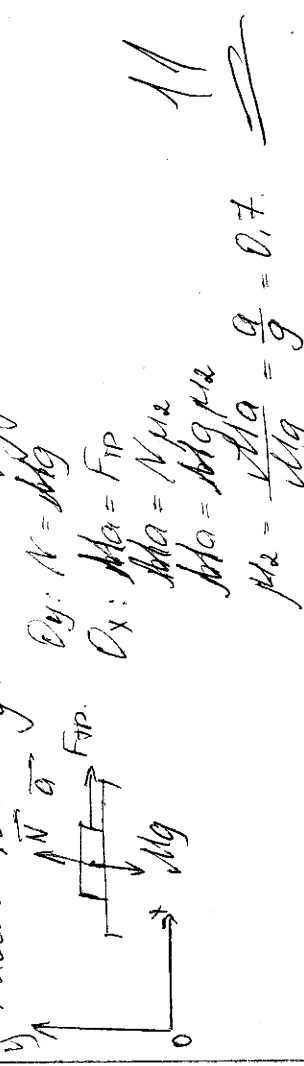 y
N a
Fтр.
Mg
x
0
Oy: N = Mg
Ox: Ma = Fтр
Ma = Nμ₂
Ma = Mgμ₂
μ₂ = Ma/Mg = a/g = 0,7.
11